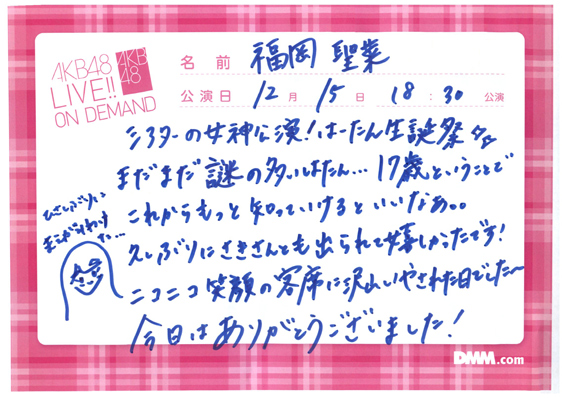 AKB48
LIVE!!
ON DEMAND
AKB
48
名前 福岡 聖菜
公演日 12月 15日 18:30 公演
シアターの女神公演！はーたん生誕祭
まだまだ謎の多いはたん… 17歳ということで
これからもっと知っていけるといいなぁ。。
久しぶりにさきさんとも出られて嬉しかったです！
ニコニコ笑顔の客席に沢山いやされた日でした〜
今日はありがとうございました！
ひさしぶりに
DMM.com